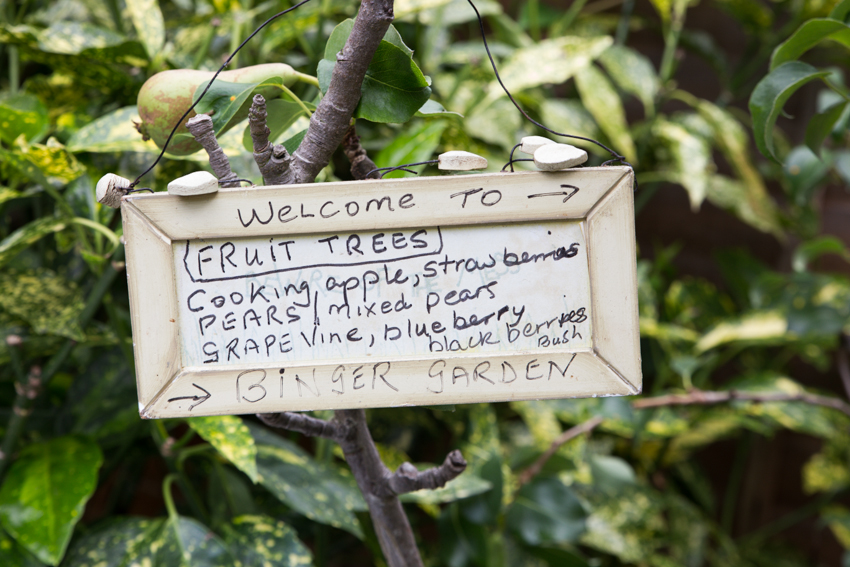 WELCOME TO →
FRUIT TREES
Cooking apple, strawberries
PEARS / mixed pears
GRAPE Vine, blueberry
black berries
Bush
→ BINGER GARDEN.